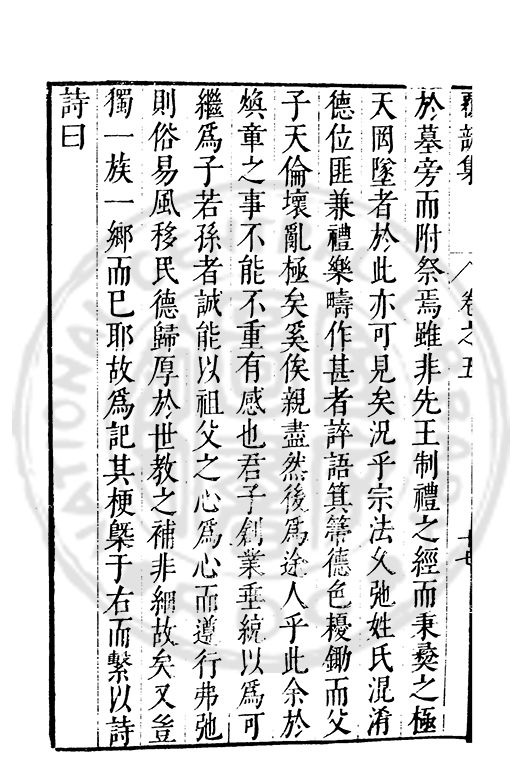 於墓旁而附祭焉雖非先王制禮之經而秉彝之極
天罔墜者於此亦可見矣況乎宗法久弛姓氏混淆
德位匪兼禮樂疇作甚者誶語箕箒德色耰鋤而父
子天倫壞亂極矣奚俟親盡然後為途人乎此余於
煥章之事不能不重有感也君子創業垂統以為可
繼為子若孫者誠能以祖父之心為心而遵行弗弛
則俗易風移民德歸厚於世教之補非細故矣又豈
獨一族一鄉而已耶故為記其梗槩于右而繫以詩
詩曰
卷之五